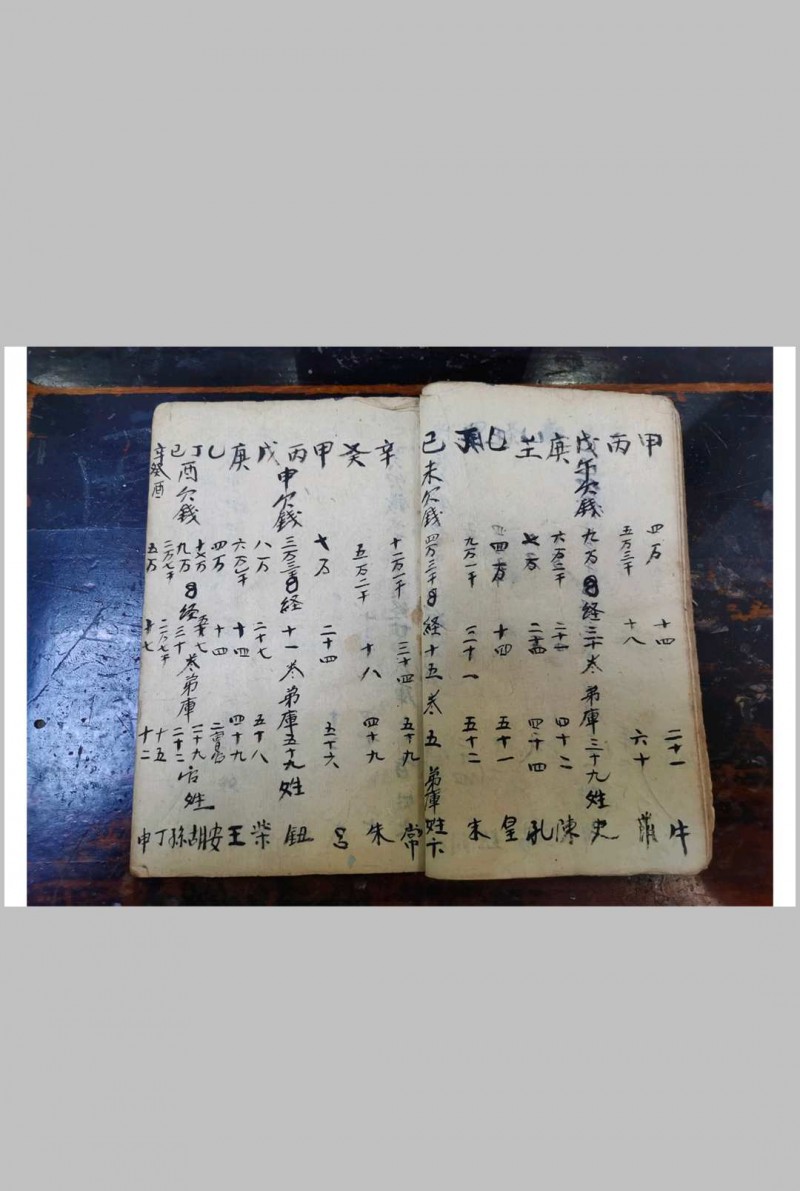 甲 四万 十四 二十一 牛
丙 五万三千 十八 六十
戊午欠錢 九万 經三十卷 弟庫三十九姓 史
庚 六万二千 二十 四十二 陳
壬 七万 四十四 孔
乙 四万 十四 五十一 皇
丁 九万一千 三十一 五十二 朱
己未欠錢 四万三千 経十五卷 五 弟庫姓 卞
辛 十一万一千 三十四 五十九 常
癸 五万二千 十八 四十九 朱
甲 七万 二十四 五十六 呂
丙申欠錢 三万三 経十一卷 弟庫五十九姓 鈕
戊 八万 二十七 五十八 柴
庚 六万一千 十四 四十九 王
乙 四万 十四 安
丁 七万 二十九 胡
己酉欠錢 九万 経三十卷 弟庫二十二 姓 孫
辛 二万七千 十五 丁
癸酉 五万 十七 十二 申